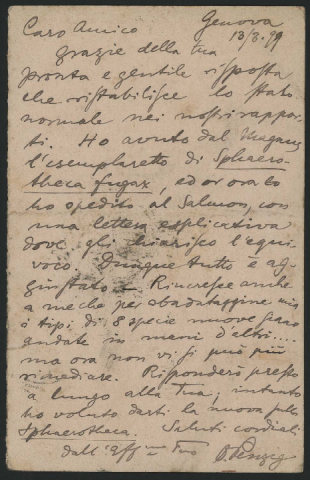 Caro Amico Genova
13/3.99
grazie della tua
pronta e gentile risposta
che ristabilisce lo stato
normale nei nostri rappor-
ti. Ho avuto dal Magnus
l'esemplaretto di Sphaero-
theca fugax, ed or ora lo
ho spedito al Salmon, con
una lettera esplicativa
dove gli chiarisco l'equi-
voco. Dunque tutto è ag-
giustato. Rincresce anche
a me che per sbadataggine mia
i tipi di specie nuove siano
andate in mani d'altri....
ma ora non vi si può più
rimediare. Risponderò presto
a lungo alla Tua; intanto
ho voluto darti la nuova della
Sphaerotheca. Saluti cordiali
dall'aff.mo Tuo O. Penzig